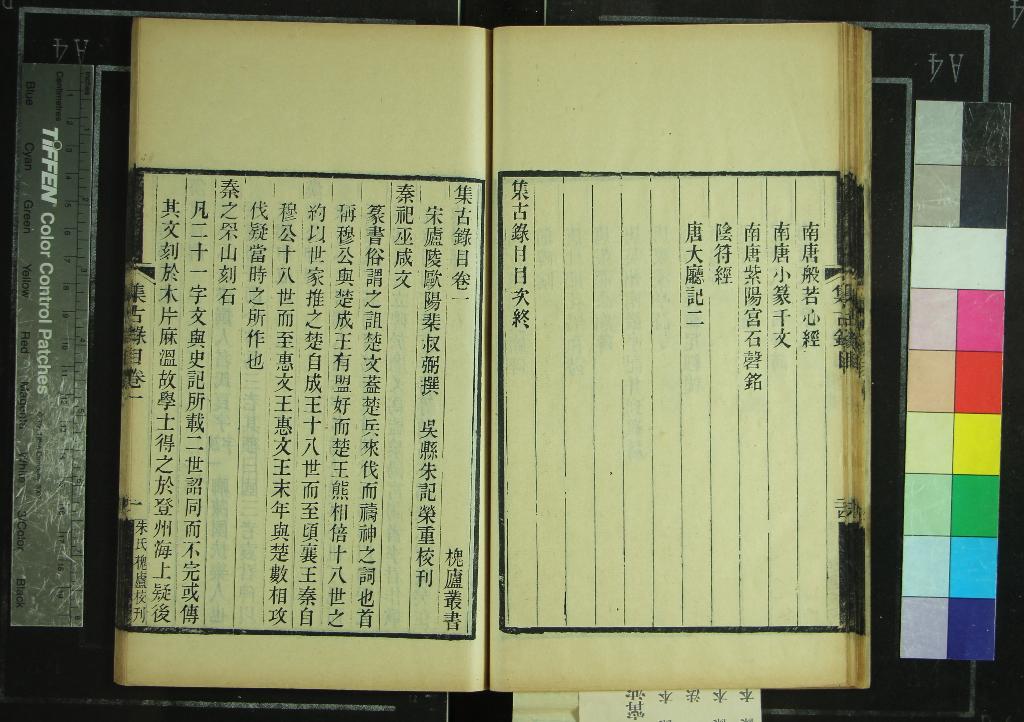 南唐般若心經
南唐小篆千文
南唐紫陽宮石磬銘
陰符經
唐大廳記二
集古錄目目次終
集古錄目卷一
槐廬叢書
宋廬陵歐陽棐叔弼撰 吳縣朱記榮重校刊
秦祀巫咸文
篆書俗謂之詛楚文蓋楚兵來伐而禱神之詞也首
稱穆公與楚成王有盟好而楚王熊相倍十八世之
約以世家推之楚自成王十八世而至頃襄王秦自
穆公十八世而至惠文王惠文王末年與楚數相攻
伐疑當時之所作也
秦之罘山刻石
凡二十一字文與史記所載二世詔同而不完或傳
其文刻於木片麻溫故學士得之於登州海上疑後
集古錄目卷一
一
朱氏槐廬校刊
TIFFEN Color Control Patches
Blue
Cyan
Green
Yellow
Red
Magenta
White
3/Color
Black
Centimetres
Inches
A4
A4